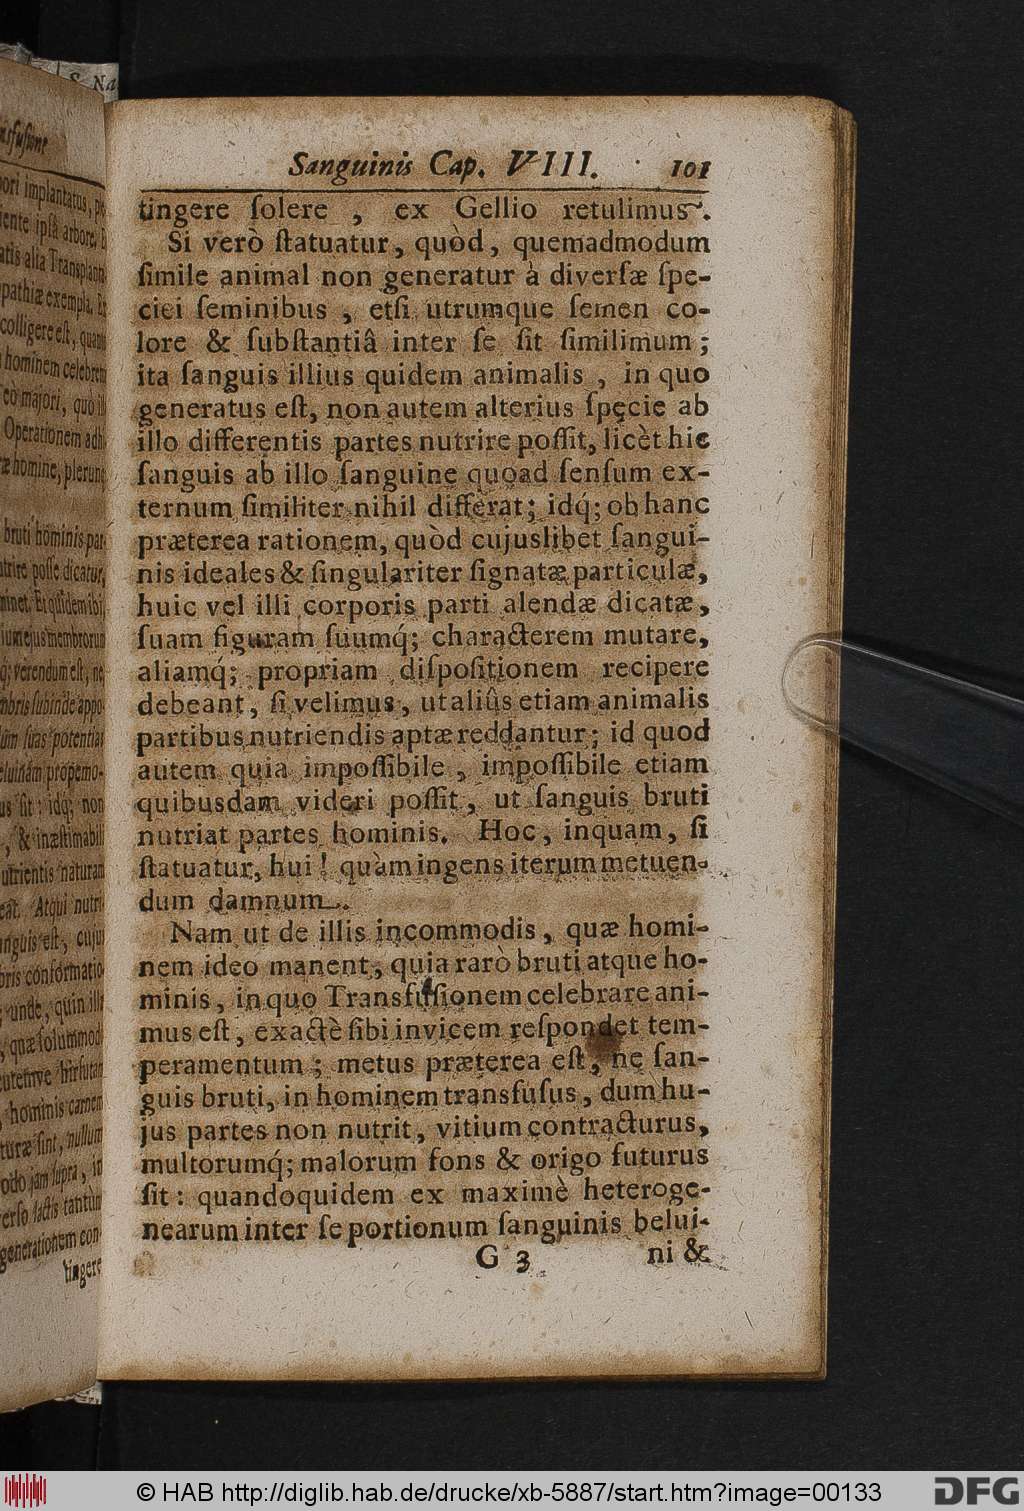 Sanguinis Cap. VIII. 101
tingere ſolere, ex Gellio retulimus.
Si verò ſtatuatur, quòd, quemadmodum
ſimile animal non generatur à diverſæ ſpe-
ciei ſeminibus, etſi utrumque ſemen co-
lore & ſubſtantiâ inter ſe ſit ſimilimum;
ita ſanguis illius quidem animalis, in quo
generatus eſt, non autem alterius ſpecie ab
illo differentis partes nutrire poſſit, licèt hic
ſanguis ab illo ſanguine quoad ſenſum ex-
ternum ſimiliter nihil differat; idq́; ob hanc
præterea rationem, quòd cujuslibet ſangui-
nis ideales & ſingulariter ſignatæ particulæ,
huic vel illi corporis parti alendæ dicatæ,
ſuam figuram ſuumq́; characterem mutare,
aliamq́; propriam diſpoſitionem recipere
debeant, ſi velimus, ut aliûs etiam animalis
partibus nutriendis aptæ reddantur; id quod
autem quia impoſſibile, impoſſibile etiam
quibusdam videri poſſit, ut ſanguis bruti
nutriat partes hominis. Hoc, inquam, ſi
ſtatuatur, hui! quàm ingens iterum metuen-
dum damnum.
Nam ut de illis incommodis, quæ homi-
nem ideo manent, quia rarò bruti atque ho-
minis, in quo Transfuſionem celebrare ani-
mus eſt, exactè ſibi invicem reſpondet tem-
peramentum; metus præterea eſt, ne ſan-
guis bruti, in hominem transfuſus, dum hu-
jus partes non nutrit, vitium contracturus,
multorumq́; malorum fons & origo futurus
ſit: quandoquidem ex maximè heteroge-
nearum inter ſe portionum ſanguinis belui-
G 3 ni &
© HAB http://diglib.hab.de/drucke/xb-5887/start.htm?image=00133
DFG